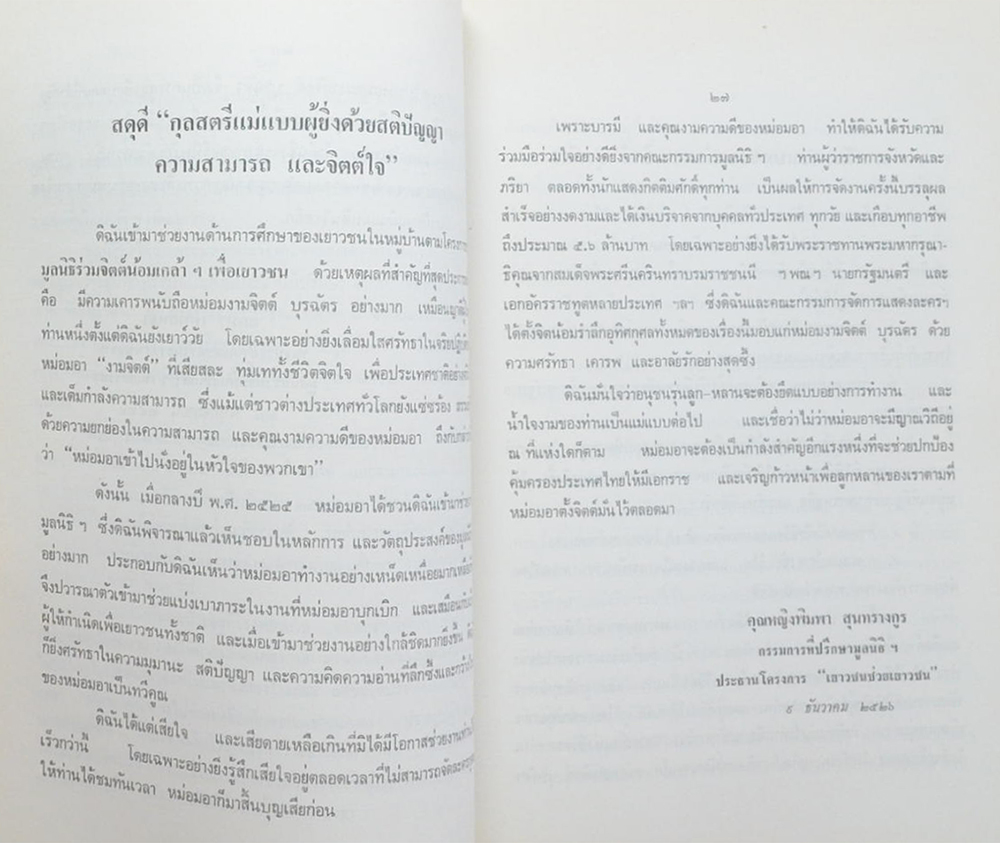 สดุดี “กุลสตรีแม่แบบผู้ยิ่งด้วยสติปัญญา
ความสามารถ และจิตต์ใจ”
ดิฉันเข้ามาช่วยงานด้านการศึกษาของเยาวชนในหมู่บ้านตามโครงการ
มูลนิธิร่วมจิตต์น้อมเกล้า ฯ เพื่อเยาวชน ด้วยเหตุผลที่สำคัญที่สุดประการ
คือ มีความเคารพนับถือหม่อมงามจิตต์ บุรฉัตร อย่างมาก เหมือนญาติ
ท่านหนึ่งตั้งแต่ดิฉันยังเยาว์วัย โดยเฉพาะอย่างยิ่งเลื่อมใสศรัทธาในจริย
หม่อมอา “งามจิตต์” ที่เสียสละ ทุ่มเททั้งชีวิตจิตใจ เพื่อประเทศชาติ
และเต็มกำลังความสามารถ ซึ่งแม้แต่ชาวต่างประเทศทั่วโลกยังแซ่ซร้อง
ด้วยความยกย่องในความสามารถ และคุณงามความดีของหม่อมอา ถึงกับ
ว่า “หม่อมอาเข้าไปนั่งอยู่ในหัวใจของพวกเขา”
ดังนั้น เมื่อกลางปี พ.ศ. ๒๕๒๕ หม่อมอาได้ชวนดิฉันเข้ามา
มูลนิธิ ฯ ซึ่งดิฉันพิจารณาแล้วเห็นชอบในหลักการ และวัตถุประสงค์ของ
อย่างมาก ประกอบกับดิฉันเห็นว่าหม่อมอาทำงานอย่างเหน็ดเหนื่อยมาก
จึงปวารณาตัวเข้ามาช่วยแบ่งเบาภาระในงานที่หม่อมอาบุกเบิก และเสมือน
ผู้ให้กำเนิดเพื่อเยาวชนทั้งชาติ และเมื่อเข้ามาช่วยงานอย่างใกล้ชิดมากยิ่งขึ้น
ก็ยิ่งศรัทธาในความมุมานะ สติปัญญา และความคิดความอ่านที่ลึกซึ้งและ
ของหม่อมอาเป็นทวีคูณ
ดิฉันได้แต่เสียใจ และเสียดายเหลือเกินที่มิได้มีโอกาสช่วยงาน
เร็วกว่านี้ โดยเฉพาะอย่างยิ่งรู้สึกเสียใจอยู่ตลอดเวลาที่ไม่สามารถจัด
ให้ท่านได้ชมทันเวลา หม่อมอาก็มาสิ้นบุญเสียก่อน
๒๗
เพราะบารมี และคุณงามความดีของหม่อมอา ทำให้ดิฉันได้รับความ
ร่วมมือร่วมใจอย่างดียิ่งจากคณะกรรมการมูลนิธิ ฯ ท่านผู้ว่าราชการจังหวัดและ
ภริยา ตลอดทั้งนักแสดงกิตติมศักดิ์ทุกท่าน เป็นผลให้การจัดงานครั้งนี้บรรลุผล
สำเร็จอย่างงดงามและได้เงินบริจาคจากบุคคลทั่วประเทศ ทุกวัย และเกือบทุกอาชีพ
ถึงประมาณ ๕.๖ ล้านบาท โดยเฉพาะอย่างยิ่งได้รับพระราชทานพระมหากรุณา-
ธิคุณจากสมเด็จพระศรีนครินทราบรมราชชนนี ฯพณฯ นายกรัฐมนตรี และ
เอกอัครราชทูตหลายประเทศ ฯลฯ ซึ่งดิฉันและคณะกรรมการจัดการแสดงละครฯ
ได้ตั้งจิตน้อมรำลึกอุทิศกุศลทั้งหมดของเรื่องนี้มอบแก่หม่อมงามจิตต์ บุรฉัตร ด้วย
ความศรัทธา เคารพ และอาลัยรักอย่างสุดซึ้ง
ดิฉันมั่นใจว่าอนุชนรุ่นลูก-หลานจะต้องยึดแบบอย่างการทำงาน และ
น้ำใจงามของท่านเป็นแม่แบบต่อไป และเชื่อว่าไม่ว่าหม่อมอาจะมีญาณวิถีอยู่
ณ ที่แห่งใดก็ตาม หม่อมอาจะต้องเป็นกำลังสำคัญอีกแรงหนึ่งที่จะช่วยปกป้อง
คุ้มครองประเทศไทยให้มีเอกราช และเจริญก้าวหน้าเพื่อลูกหลานของเราตามที่
หม่อมอาตั้งจิตต์มั่นไว้ตลอดมา
คุณหญิงพิมพา สุนทรางกูร
กรรมการที่ปรึกษามูลนิธิ ฯ
ประธานโครงการ “เยาวชนช่วยเยาวชน”
๙ ธันวาคม ๒๕๒๖